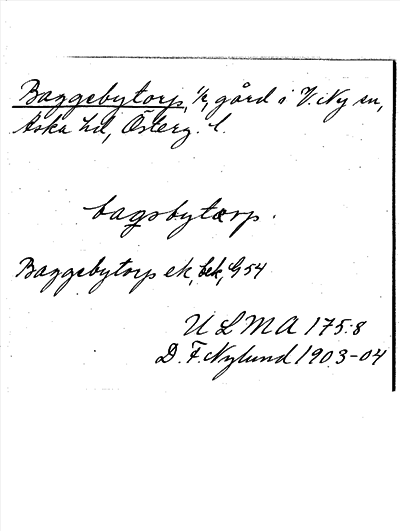 Baggebytorp, ½, gård i V. Ny sn,
Aska hd, Österg. l.
bagsbytærp.
Baggebytorp ek, bek, G 54
ULMA 175:8
D. F. Nylund 1903-04